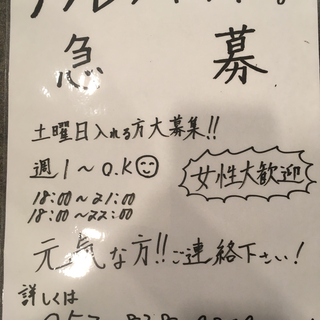 急募
土曜日入れる方大募集!!
週1〜O.K
女性大歓迎
18:00〜21:00
18:00〜22:00
元気な方!!ご連絡下さい!
詳しくは